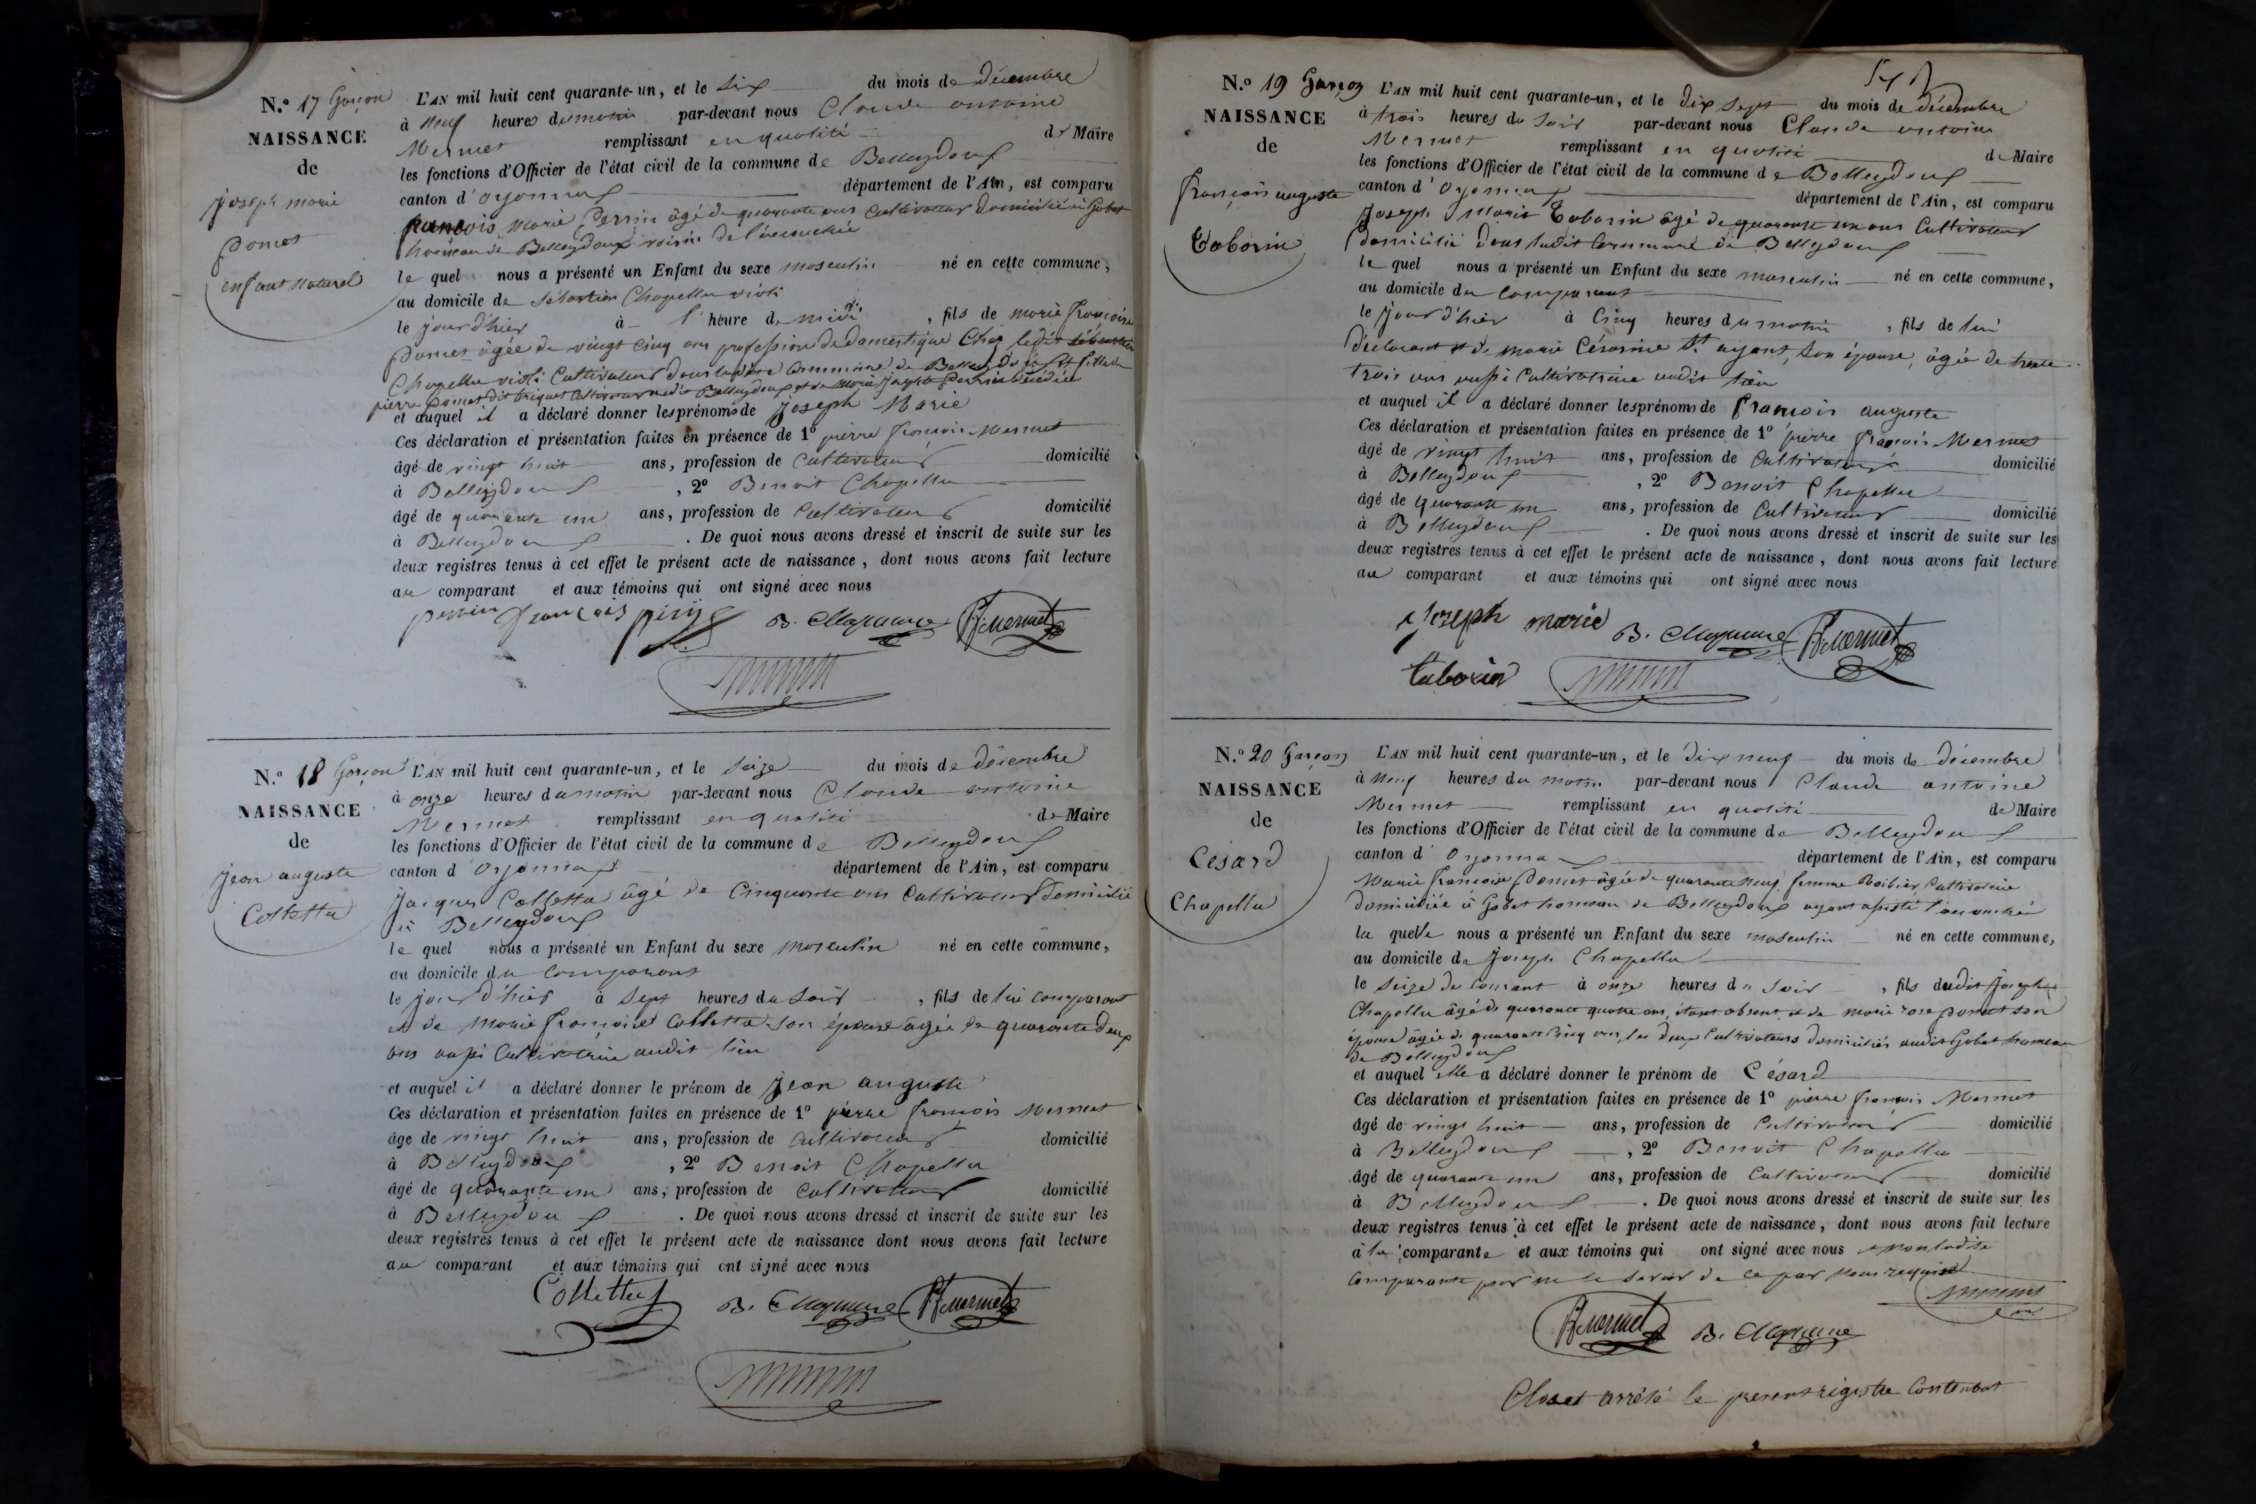 N.º 17 Garçon
NAISSANCE
de
joseph marie
Ponet
enfant naturel
L'AN mil huit cent quarante-un, et le Six du mois de décembre
à neuf heures du matin par-devant nous Claude antoine
Mermet remplissant en qualité de Maire
les fonctions d'Officier de l'état civil de la commune de Belleydoux
canton d'oyonnax département de l'Ain, est comparu
françois Marie Perrin âgé de quarante ans Cultivateur domicilié à Gobet
hameau de Belleydoux voisin de l'accouchée
le quel nous a présenté un Enfant du sexe masculin né en cette commune,
au domicile de Sébastien Chapellu violi
le jour d'hier à l'heure de midi, fils de marie françoise
Ponet âgée de vingt cinq ans profession de domestique Chez ledit sébastien
Chapellu violi Cultivateur dans ladite Commune de Belleydoux et fille de
pierre Ponet dit Cultivateur audit Belleydoux et de Marie josephte Perrin
et auquel il a déclaré donner les prénoms de joseph Marie
Ces déclaration et présentation faites en présence de 1º pierre françois Mermet
âgé de vingt huit ans, profession de Cultivateur domicilié
à Belleydoux, 2º Benoit Chapellu
âgé de quarante un ans, profession de Cultivateur domicilié
à Belleydoux. De quoi nous avons dressé et inscrit de suite sur les
deux registres tenus à cet effet le présent acte de naissance, dont nous avons fait lecture
au comparant et aux témoins qui ont signé avec nous
perrin françois
N.º 18 Garçon
NAISSANCE
de
jean auguste
Collettaz
L'AN mil huit cent quarante-un, et le Seize du mois de décembre
à onze heures du matin par-devant nous Claude antoine
Mermet remplissant en qualité de Maire
les fonctions d'Officier de l'état civil de la commune de Belleydoux
canton d'oyonnax département de l'Ain, est comparu
jacques Colletta âgé de Cinquante ans Cultivateur domicilié
à Belleydoux
le quel nous a présenté un Enfant du sexe masculin né en cette commune,
au domicile du comparant
le jour d'hier à sept heures du soir, fils de lui comparant
et de Marie françoise Colletta son épouse âgée de quarante deux
ans aussi Cultivatrice audit lieu
et auquel il a déclaré donner le prénom de jean auguste
Ces déclaration et présentation faites en présence de 1º pierre françois Mermet
âgé de vingt huit ans, profession de Cultivateur domicilié
à Belleydoux, 2º Benoit Chapellu
âgé de quarante un ans, profession de Cultivateur domicilié
à Belleydoux. De quoi nous avons dressé et inscrit de suite sur les
deux registres tenus à cet effet le présent acte de naissance dont nous avons fait lecture
au comparant et aux témoins qui ont signé avec nous
N.º 19 Garçon
NAISSANCE
de
françois auguste
Taborin
L'AN mil huit cent quarante-un, et le dix sept du mois de décembre
à trois heures du soir par-devant nous Claude antoine
Mermet remplissant en qualité de Maire
les fonctions d'Officier de l'état civil de la commune de Belleydoux
canton d'oyonnax département de l'Ain, est comparu
Joseph Marie Taborin âgé de quarante un ans Cultivateur
domicilié dans ladite Commune de Belleydoux
le quel nous a présenté un Enfant du sexe masculin né en cette commune,
au domicile du comparant
le jour d'hier à Cinq heures du matin, fils de lui
déclarant et de Marie Césarine son épouse, âgée de trente
trois ans aussi Cultivatrice audit lieu
et auquel il a déclaré donner les prénoms de françois auguste
Ces déclaration et présentation faites en présence de 1º pierre françois Mermet
âgé de vingt huit ans, profession de Cultivateur domicilié
à Belleydoux, 2º Benoit Chapellu
âgé de quarante un ans, profession de Cultivateur domicilié
à Belleydoux. De quoi nous avons dressé et inscrit de suite sur les
deux registres tenus à cet effet le présent acte de naissance, dont nous avons fait lecture
au comparant et aux témoins qui ont signé avec nous
joseph marie
taborin
N.º 20 Garçon
NAISSANCE
de
Césard
Chapellu
L'AN mil huit cent quarante-un, et le dix neuf du mois de décembre
à neuf heures du matin par-devant nous Claude antoine
Mermet remplissant en qualité de Maire
les fonctions d'Officier de l'état civil de la commune de Belleydoux
canton d'oyonnax département de l'Ain, est comparu
Marie françoise Ponet âgée de quarante neuf femme Cultivatrice
domiciliée à Gobet hameau de Belleydoux ayant assisté l'accouchée
la quelle nous a présenté un Enfant du sexe masculin né en cette commune,
au domicile de joseph Chapellu
le seize du courant à onze heures du soir, fils dudit joseph
Chapellu âgé de quarante quatre ans, étant absent, et de marie rose ponet son
épouse âgée de quarante cinq ans, les deux Cultivateurs domiciliés audit Gobet hameau
de Belleydoux
et auquel elle a déclaré donner le prénom de Césard
Ces déclaration et présentation faites en présence de 1º pierre françois Mermet
âgé de vingt huit ans, profession de Cultivateur domicilié
à Belleydoux, 2º Benoit Chapellu
âgé de quarante un ans, profession de Cultivateur domicilié
à Belleydoux. De quoi nous avons dressé et inscrit de suite sur les
deux registres tenus à cet effet le présent acte de naissance, dont nous avons fait lecture
à la comparante et aux témoins qui ont signé avec nous et non ladite
comparante pour ne le savoir de ce par nous requise
Clos et arrêté le present registre Contenant